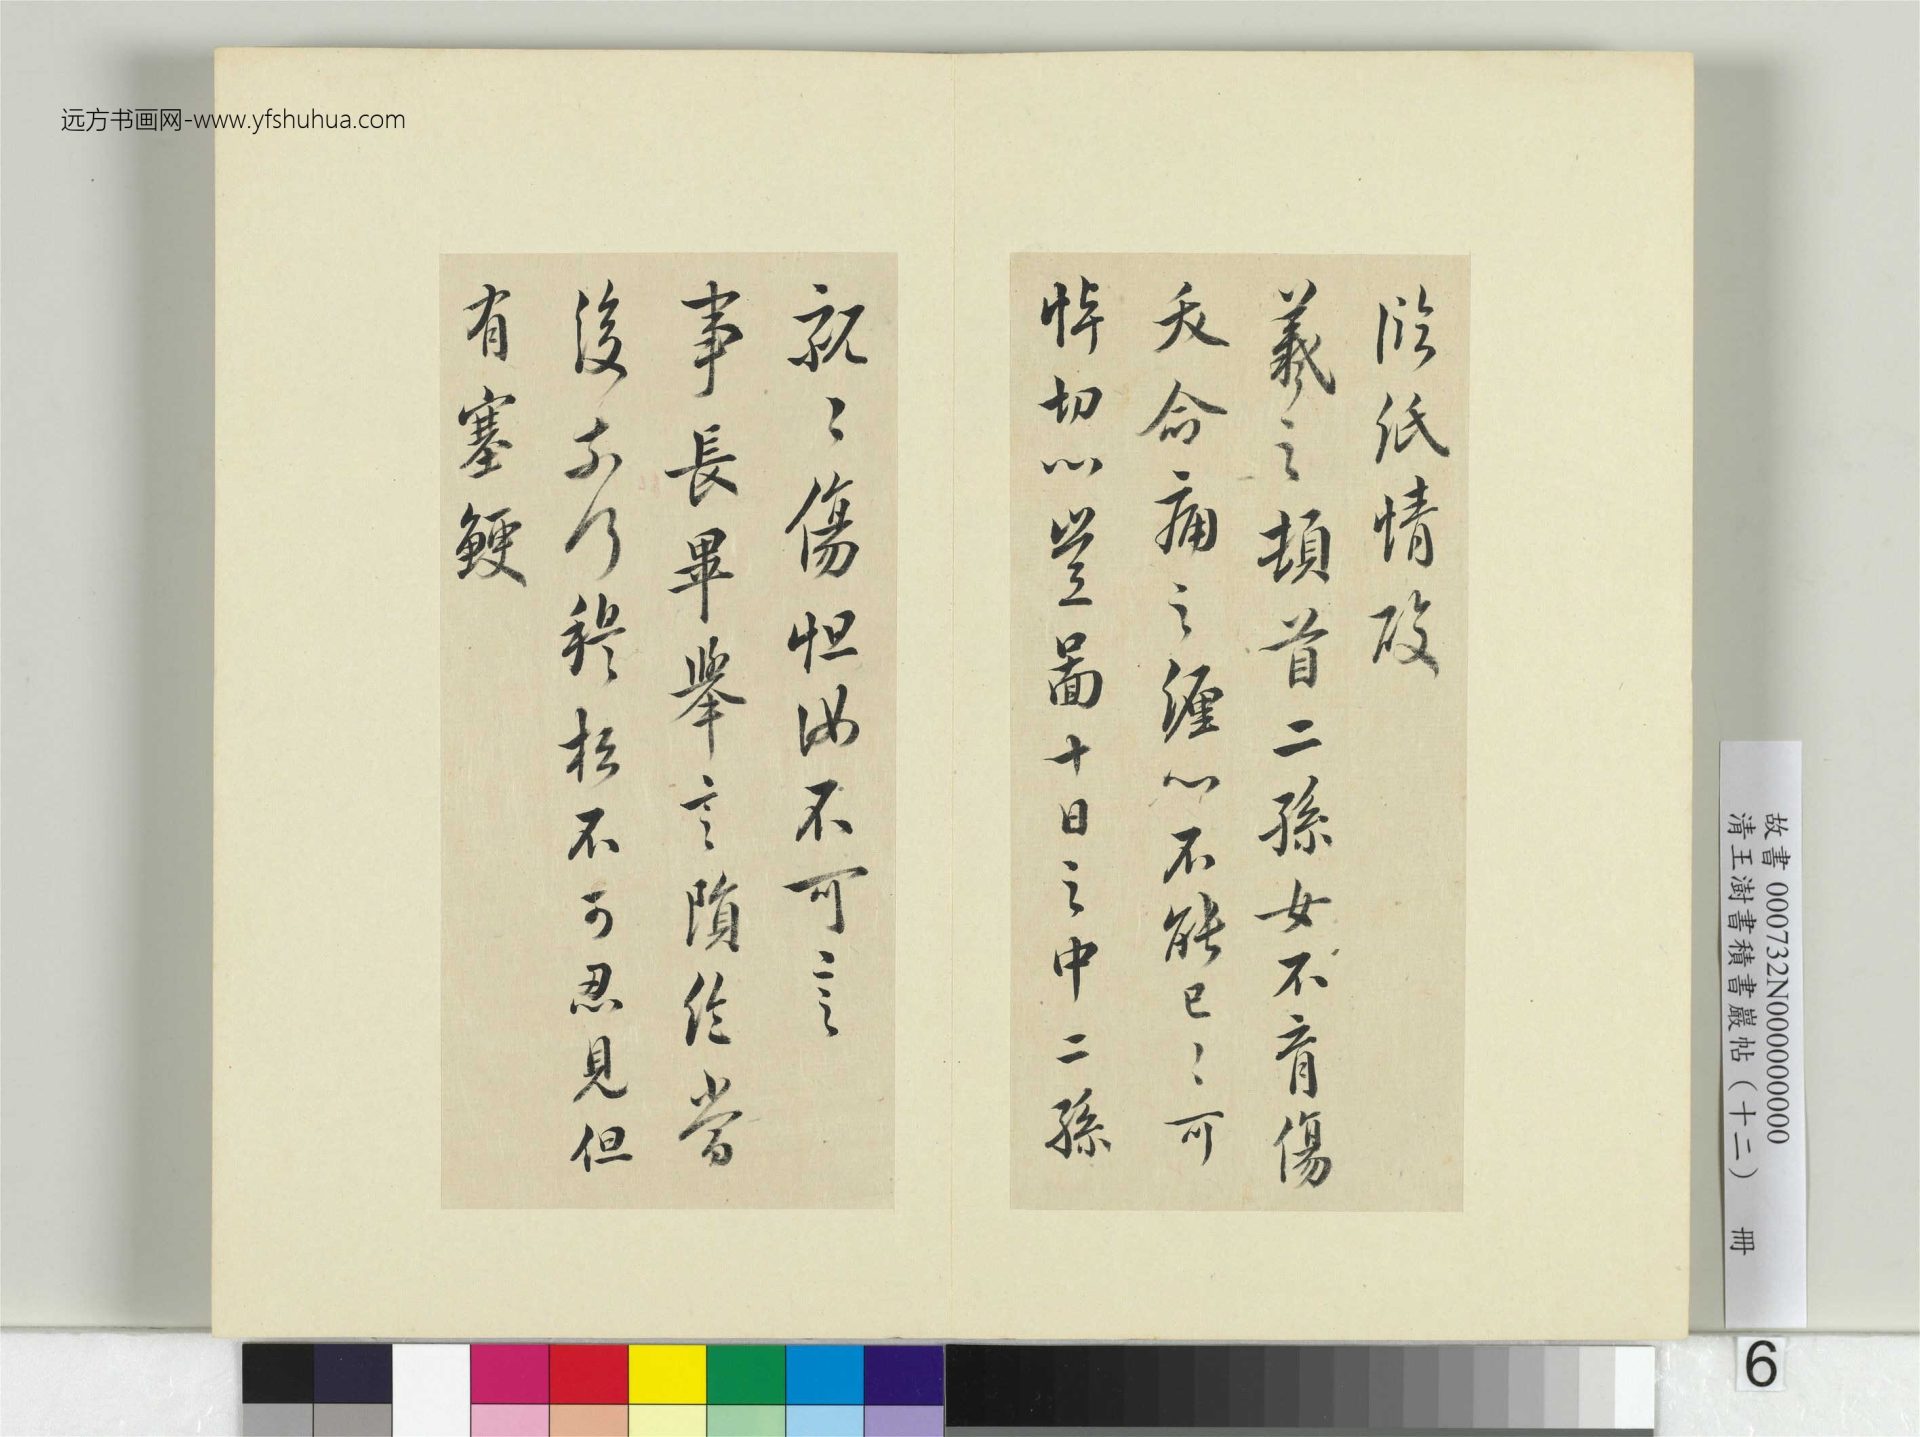 远方书画网-www.yfshuhua.com
臨紙情酸
羲之頓首二孫女不育傷
夭命痛之纏心不能已〻可
悼切心豈圖十日之中二孫
就〻傷怛汝不可言
事長畢舉言隕絕當
復奈何穆松不可忍見但
有塞鯁
故書 000732N000000000
清王澍書積書巖帖(十二) 冊
6